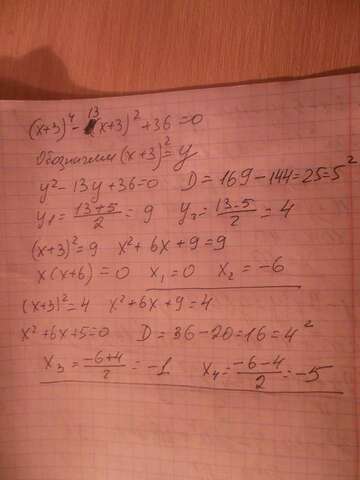 (x+3)⁴ - 13(x+3)² + 36 = 0
Обозначим (x+3)² = y
y² - 13y + 36 = 0 D = 169 - 144 = 25 = 5²
y₁ = (13+5)/2 = 9 y₂ = (13-5)/2 = 4
(x+3)² = 9 x² + 6x + 9 = 9
x(x+6) = 0 x₁ = 0 x₂ = -6
(x+3)² = 4 x² + 6x + 9 = 4
x² + 6x + 5 = 0 D = 36 - 20 = 16 = 4²
x₃ = (-6+4)/2 = -1 x₄ = (-6-4)/2 = -5